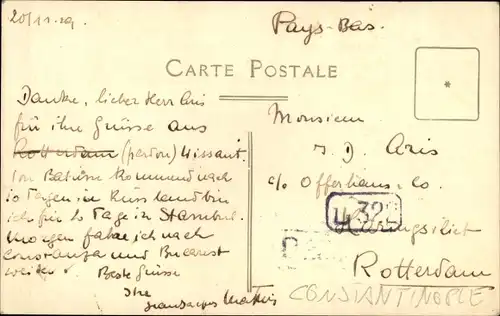 20/11.29.
Pays-Bas.
CARTE POSTALE
Danke, lieber Herr Aris
für ihre Grüsse aus
Rotterdam (pardon) Wissant.
Von Batum kommend nach
10 Tagen in Russland bin
ich für 2 Tage in Stambul.
Morgen fahre ich nach
Constanza und Bucarest
weiter. Beste Grüsse
Ihr
Monsieur
J. D. Aris
c/o Offerhaus & Co.
322
Haringvliet
Rotterdam
CONSTANTINOPLE